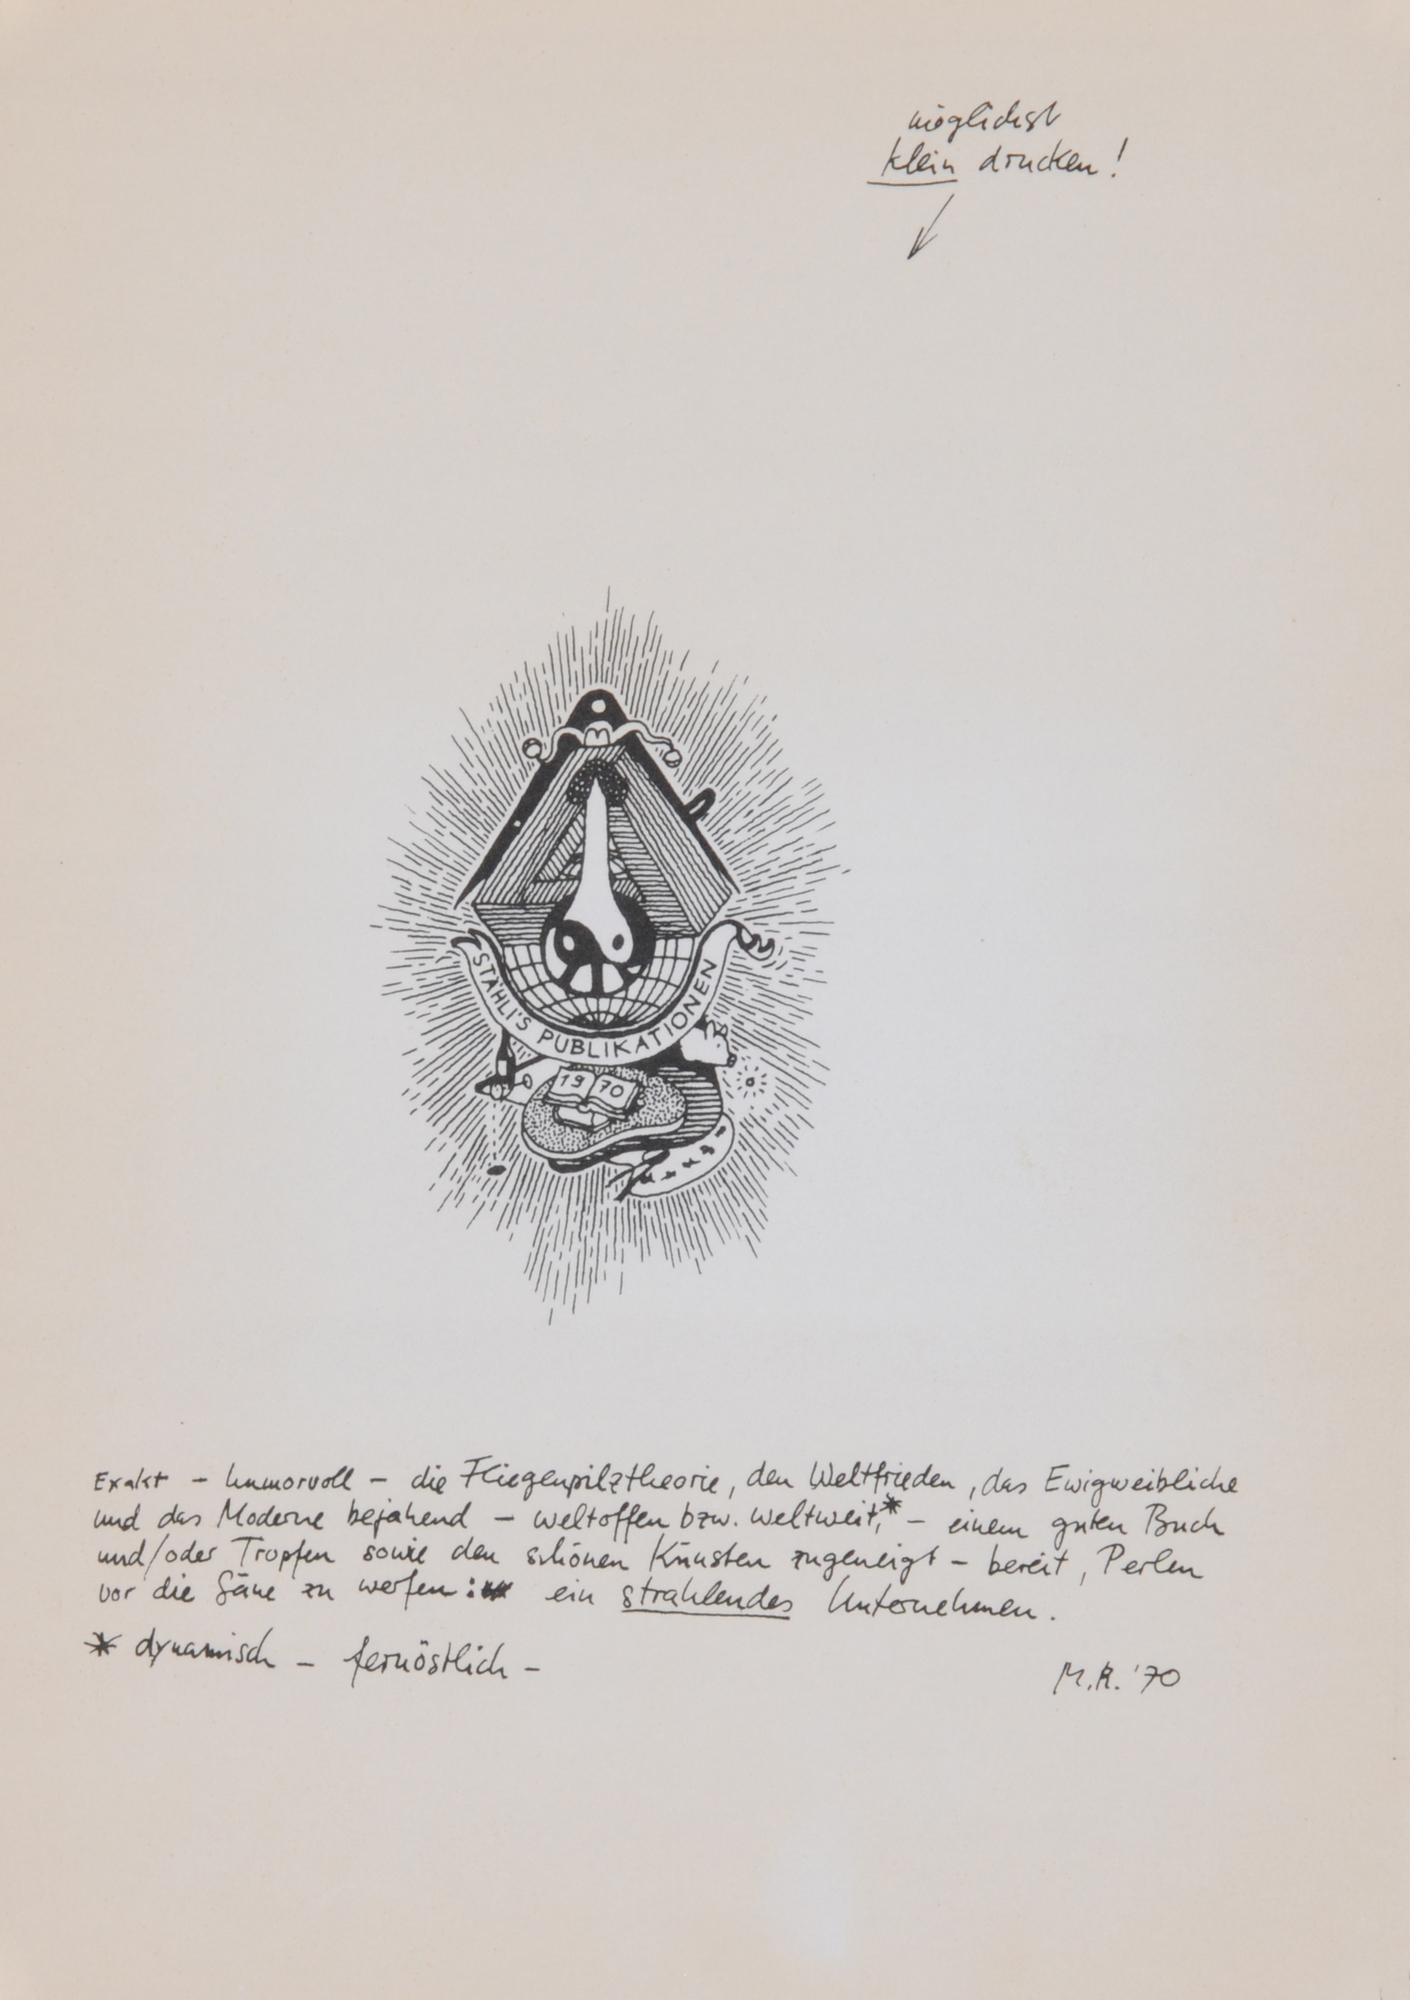 möglichst
klein drucken!
STÄHLI'S PUBLIKATIONEN
19 70
Exakt – humorvoll – die Fliegenpilztheorie, den Weltfrieden, das Ewigweibliche
und das Moderne bejahend – weltoffen bzw. weltweit,* – einem guten Buch
und/oder Tropfen sowie den schönen Künsten zugeneigt – bereit, Perlen
vor die Säue zu werfen: ein strahlendes Unternehmen.
* dynamisch – fernöstlich –
M.R. '70